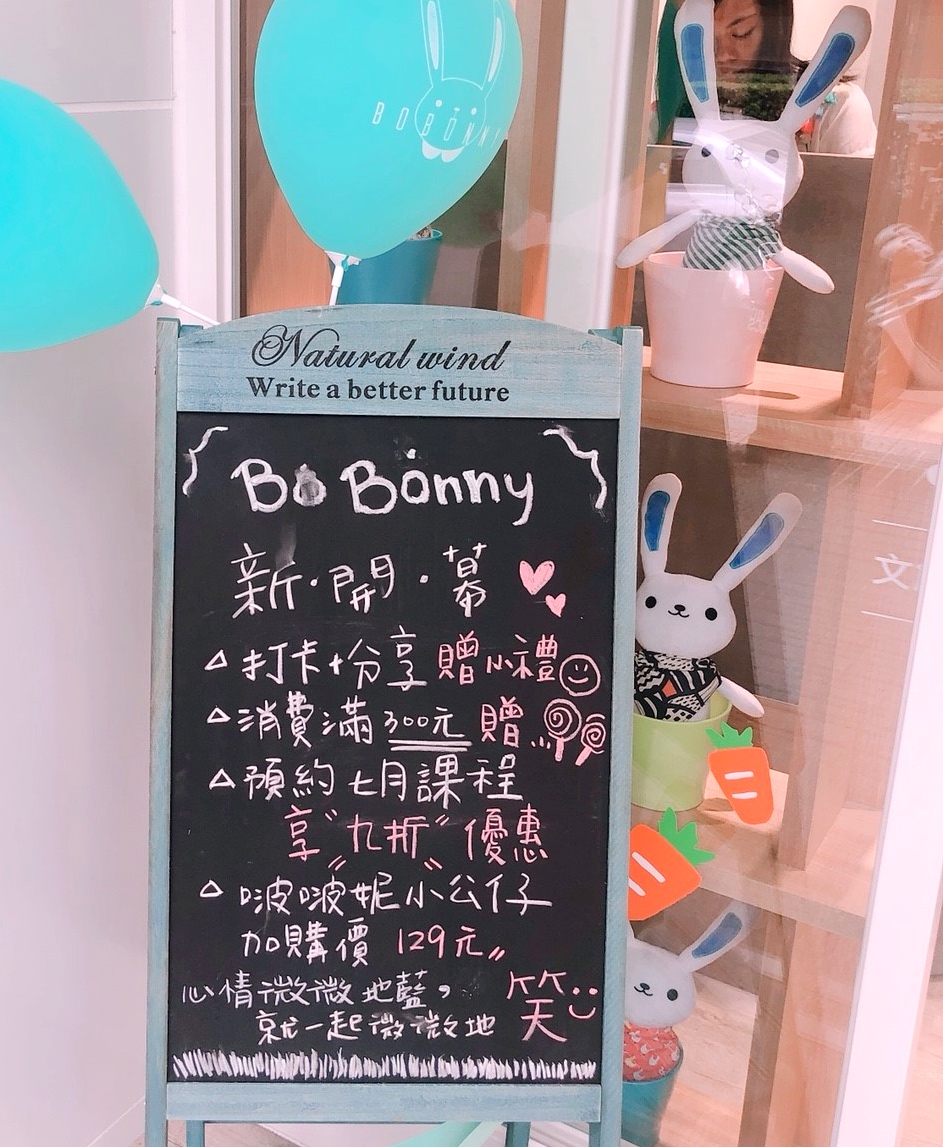 BOBONNY
Natural wind
Write a better future
Bo Bonny
新·開·幕
△打卡+分享贈小禮
△消費滿300元贈
△預約七月課程
享〝九折〞優惠
△啵啵妮小公仔
加購價 129元〃
心情微微地藍，
就一起微微地笑
文